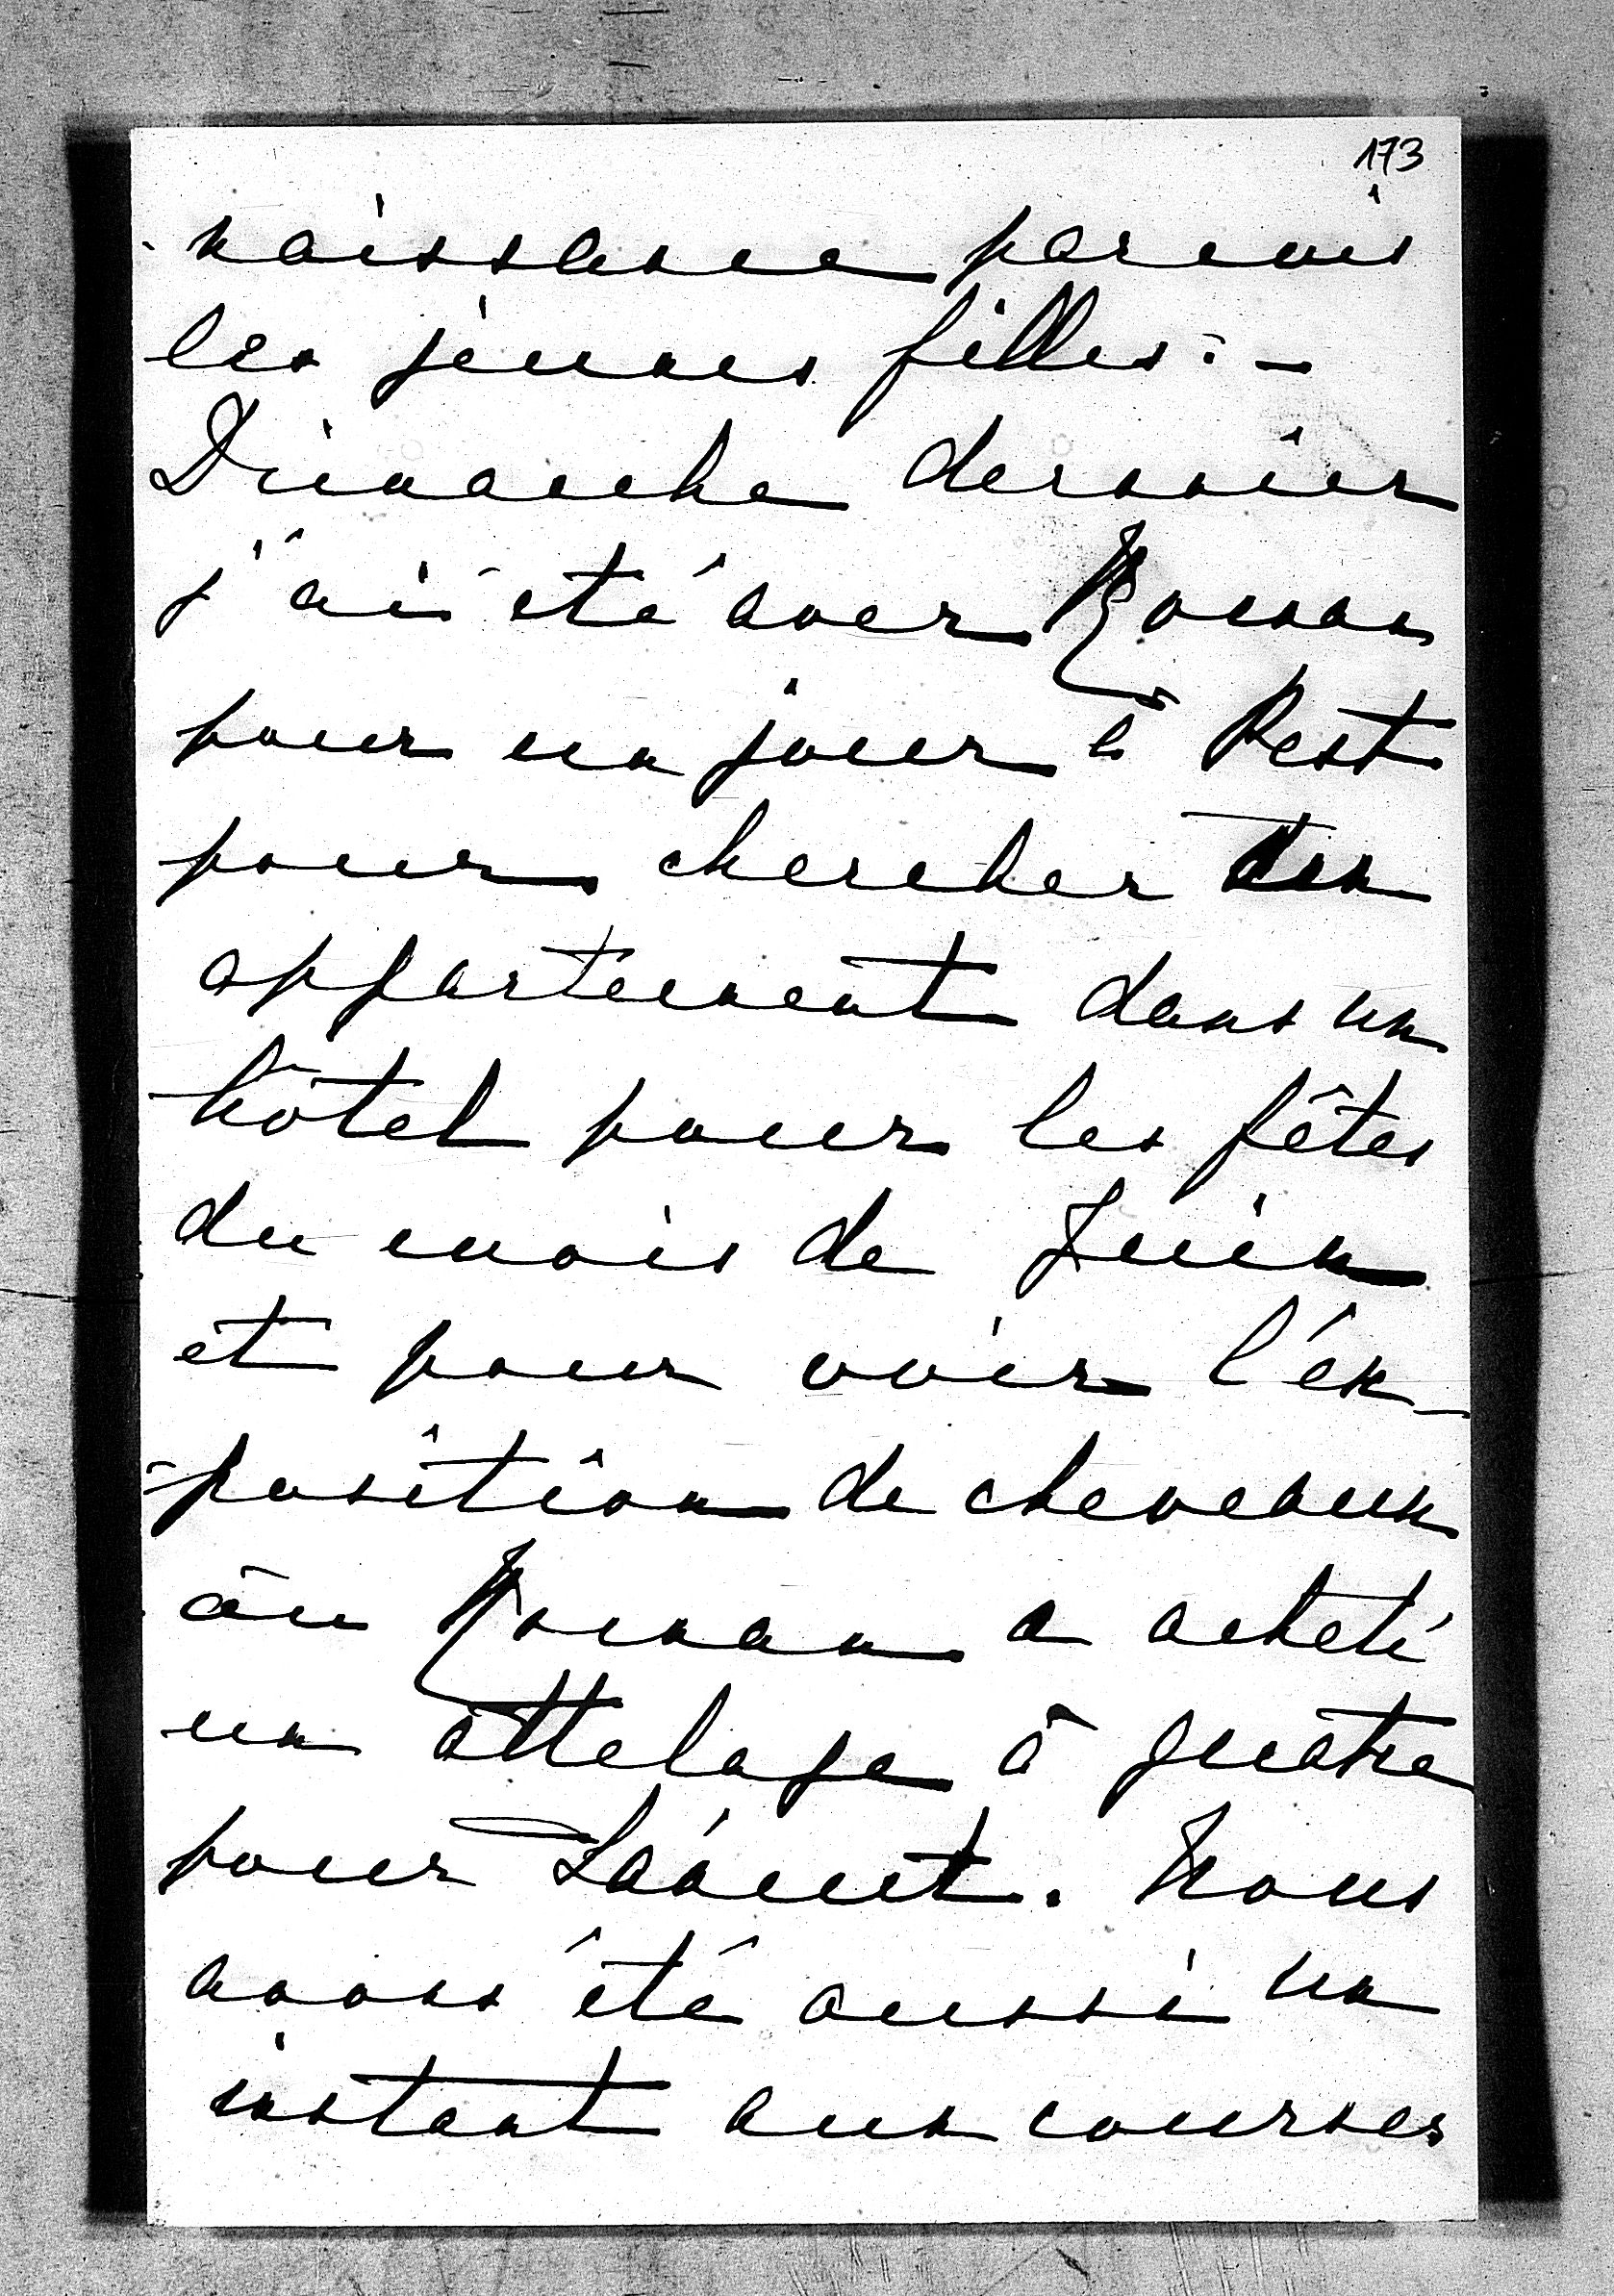 173
-naissance parmi
les jeunes filles. -
Dimanche dernier
j'ai été avec Roman
pour un jour à Pest
pour chercher un
appartement dans un
hôtel pour les fêtes
du mois de Juin
et pour voir l'ex-
-position de cheveaux
où Roman a acheté
un attelage à quatre
pour Łańcut. Nous
avons été aussi un
instant aux courses